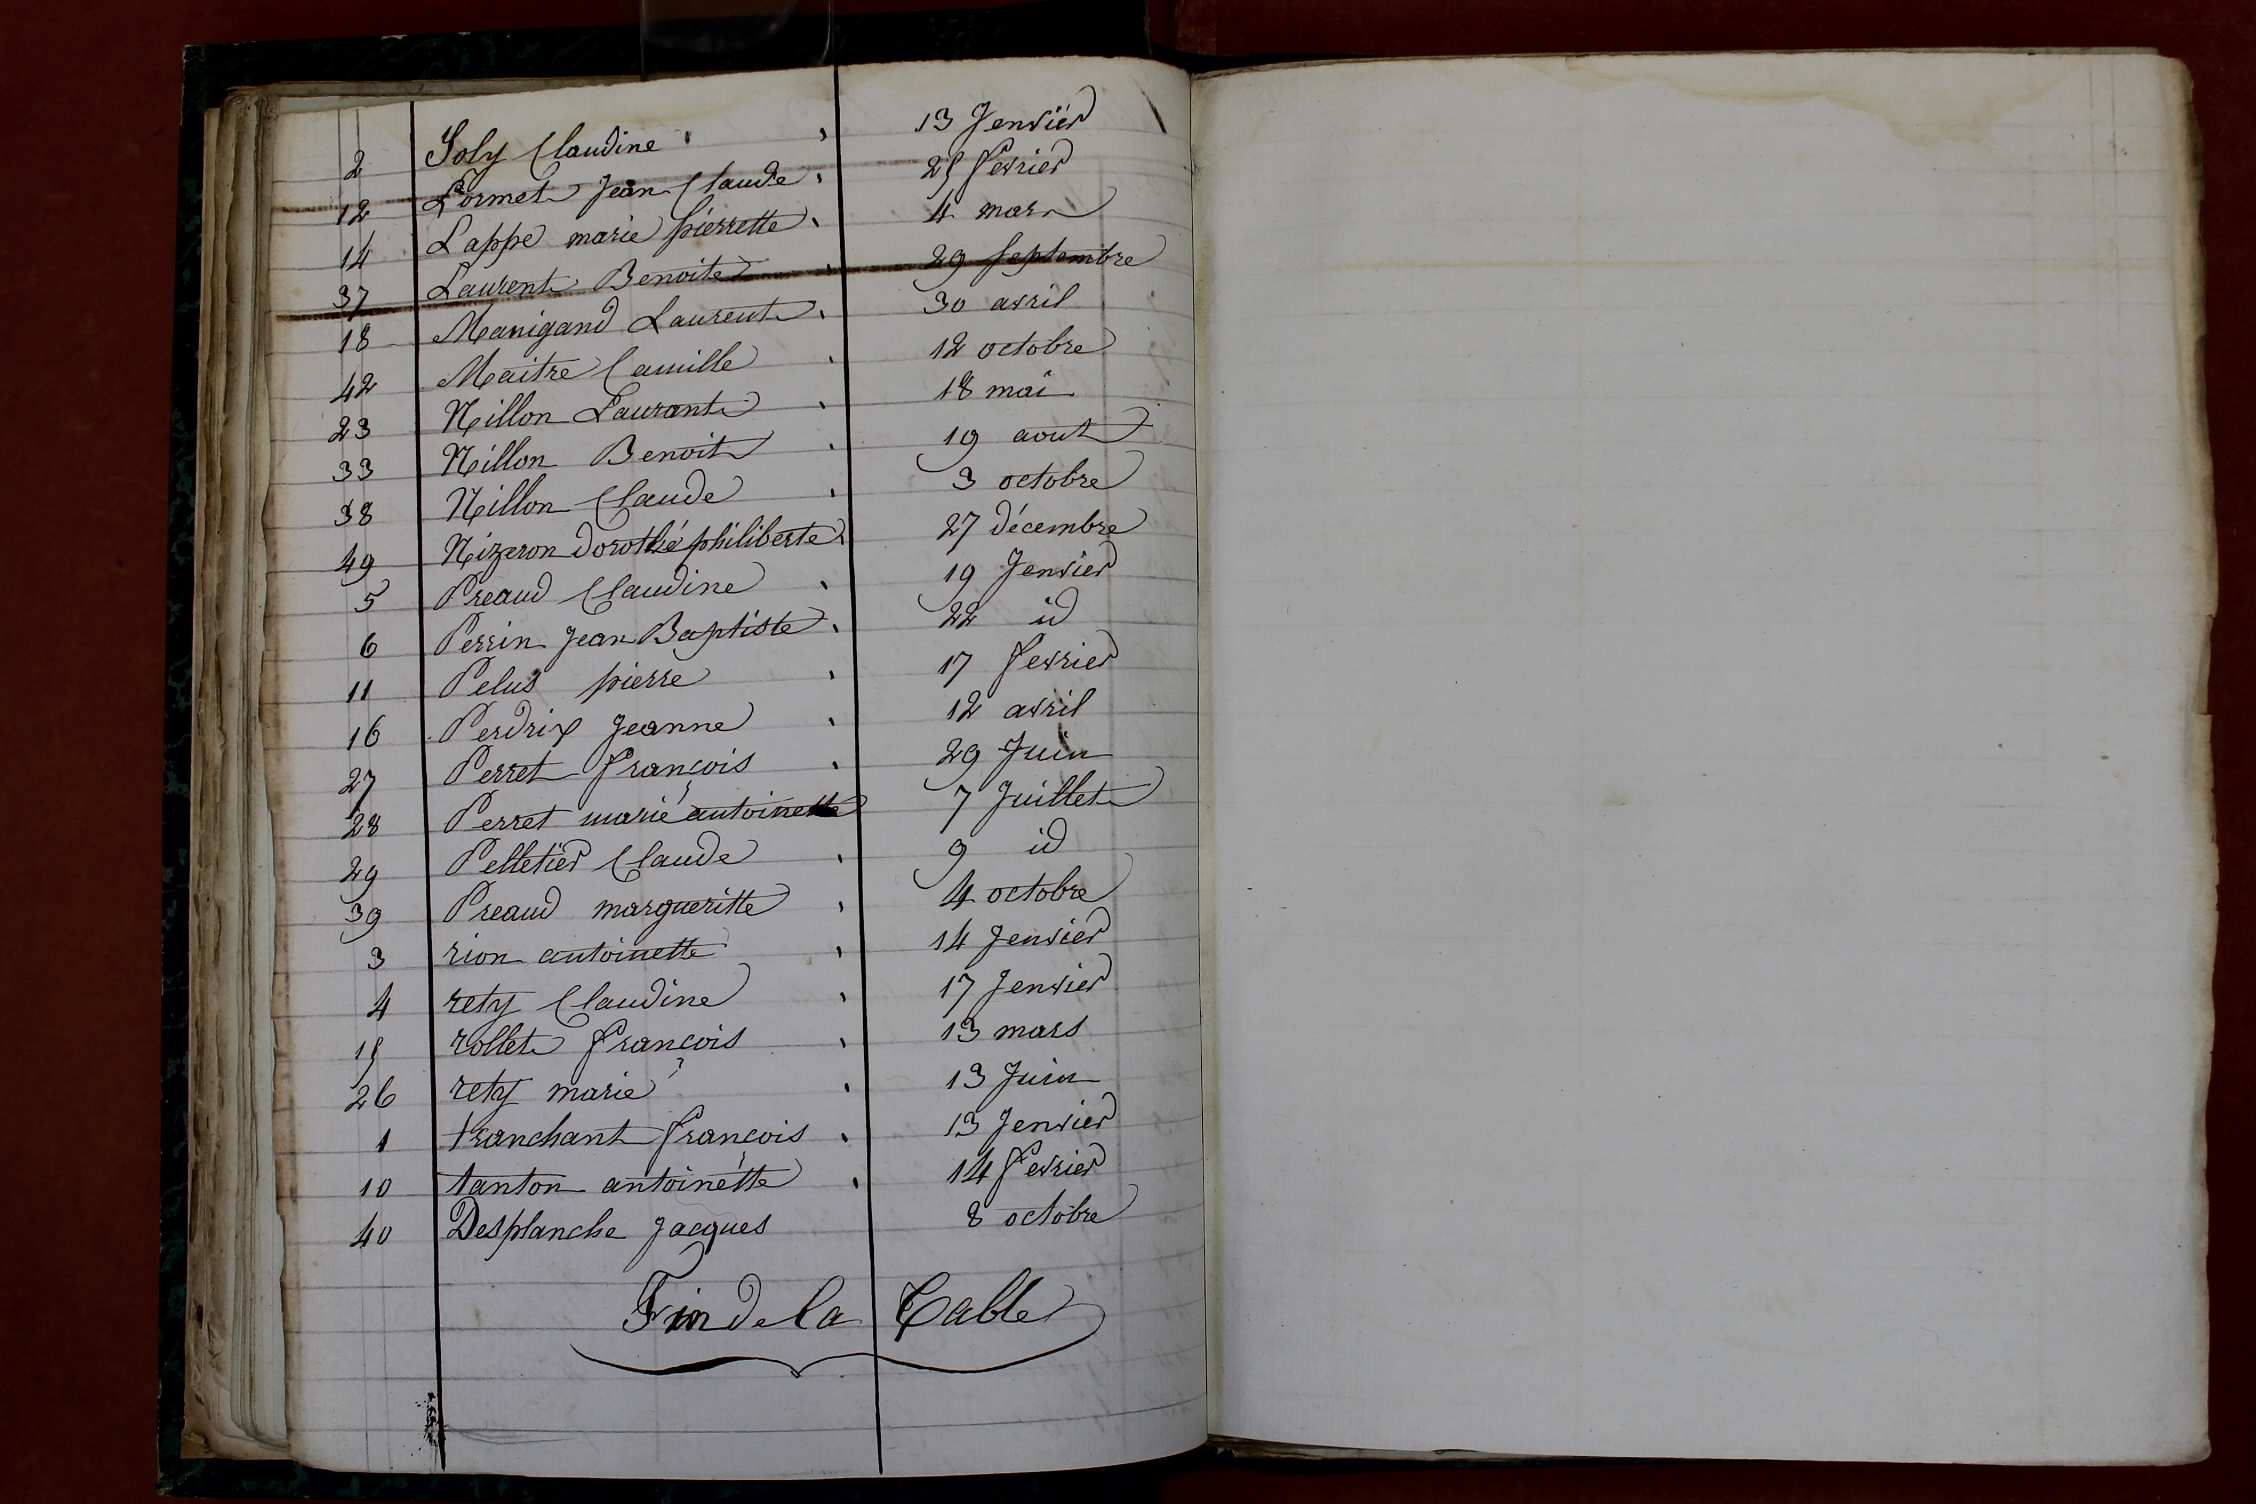 2 Joly Claudine 13 Jenvier
12 Lormet Jean Claude 25 fevrier
14 Lappe marie pierrette 4 mars
37 Laurent Benoite 29 septembre
18 Manigand Laurent 30 avril
42 Maitre Camille 12 octobre
23 Nillon Laurant 18 mai
33 Nillon Benoit 19 aout
38 Nillon Claude 3 octobre
49 Nizeron dorothé philiberte 27 décembre
5 Preaud Claudine 19 Jenvier
6 Perrin Jean Baptiste 22 id
11 Pelus pierre 17 fevrier
16 Perdrix Jeanne 12 avril
27 Perret françois 29 Juin
28 Perret marie antoinette 7 Juillet
29 Pelletier Claude 9 id
39 Preaud margueritte 4 octobre
3 rion antoinette 14 Jenvier
4 rety Claudine 17 Jenvier
15 rollet françois 13 mars
26 rety marie 13 Juin
1 tranchant françois 13 Jenvier
10 tanton antoinette 14 fevrier
40 Desplanche Jacques 8 octobre
Fin de la Table